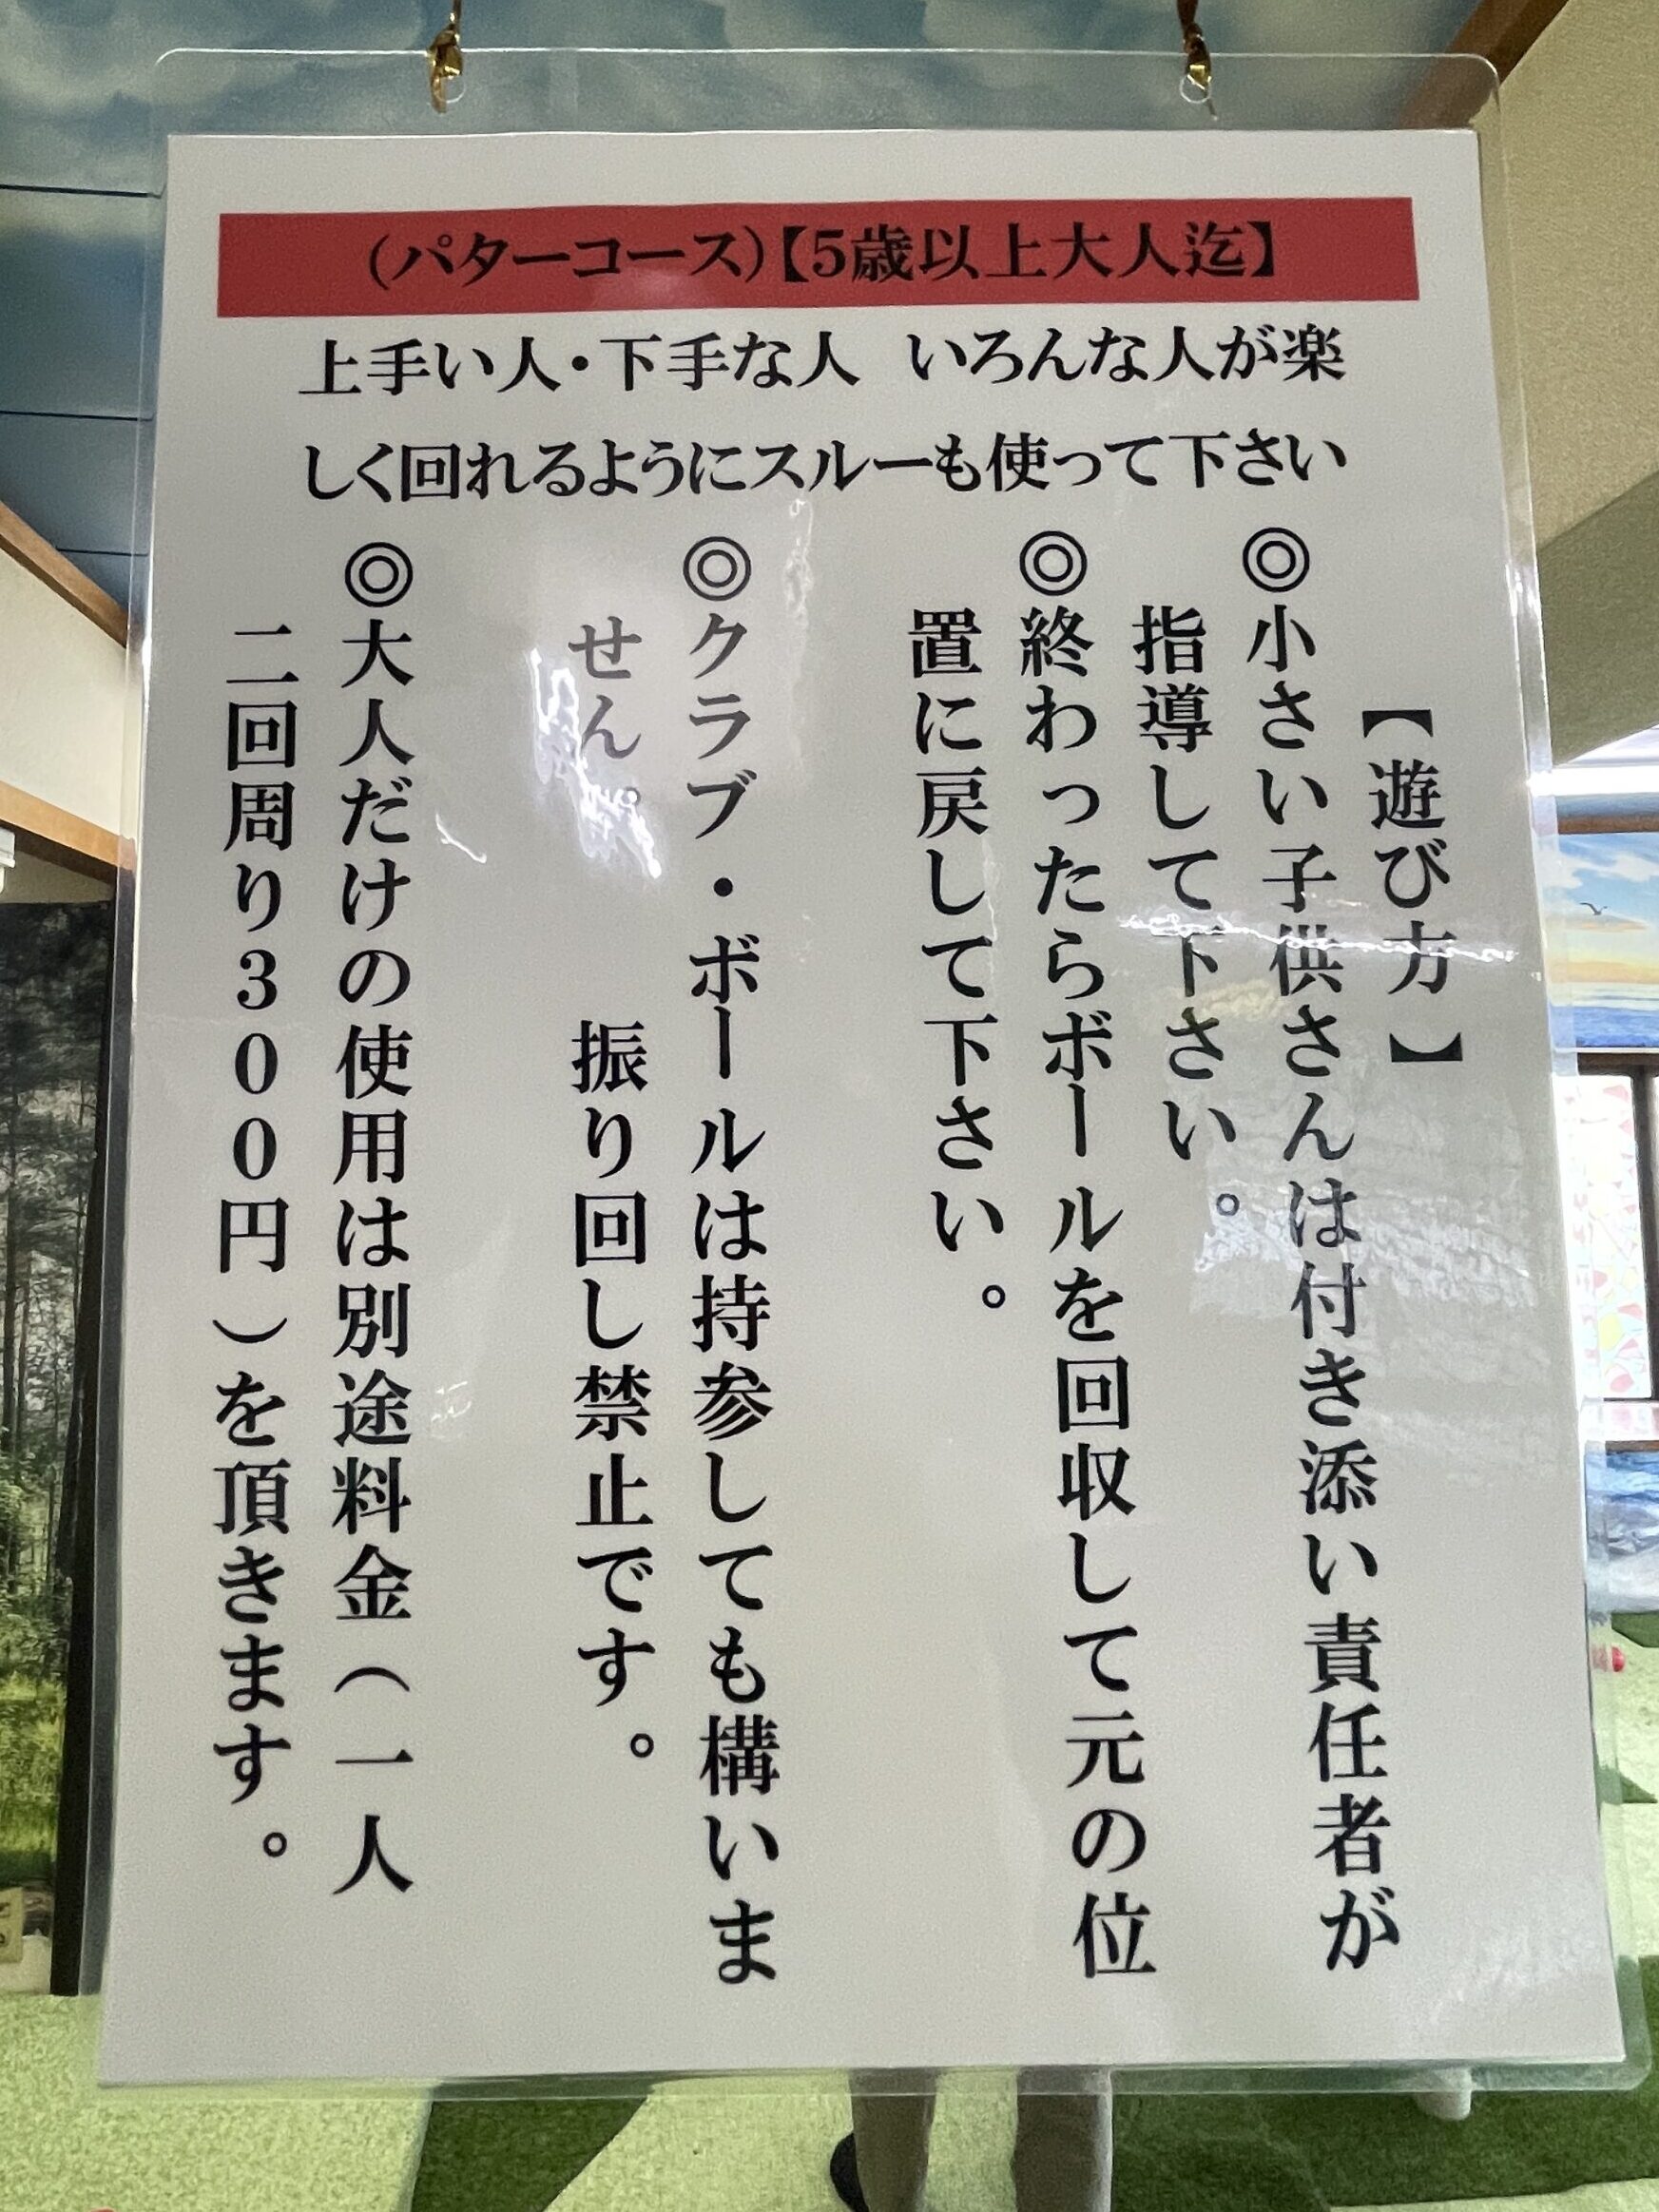 (パターコース)【5歳以上大人迄】
上手い人・下手な人 いろんな人が楽
しく回れるようにスルーも使って下さい
【遊び方】
◎小さい子供さんは付き添い責任者が
指導して下さい。
◎終わったらボールを回収して元の位
置に戻して下さい。
◎クラブ・ボールは持参しても構いま
せん。 振り回し禁止です。
◎大人だけの使用は別途料金(一人
二回周り300円)を頂きます。